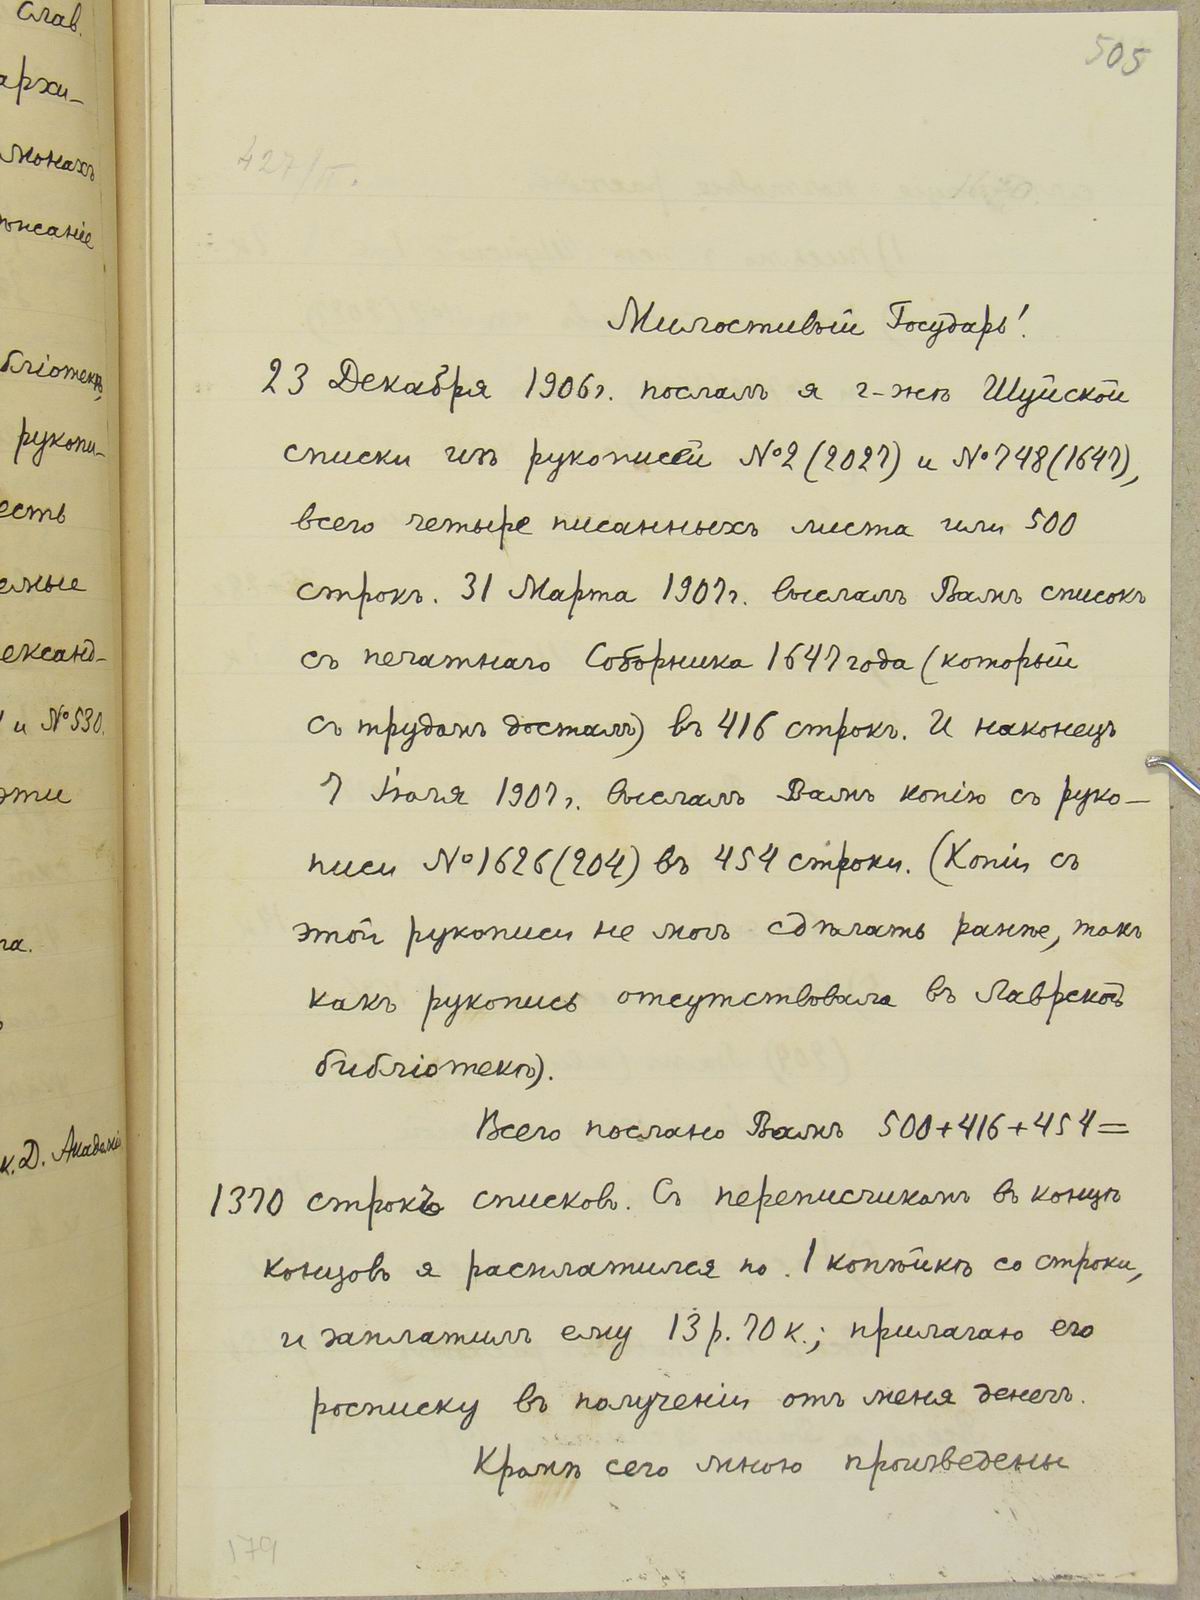 Слав.
архи-
монахъ
писаніе
бліотекѣ,
рукопи-
есть
емые
ександ-
и №530.
эти
та.
к. Д. Академіи
505
427/II.
Милостивый Государь!
23 Декабря 1906г. послалъ я г-жѣ Шуйской
списки изъ рукописей №2 (2027) и №748 (1647),
всего четыре писанныхъ листа или 500
строкъ. 31 Марта 1907г. выслалъ Вамъ списокъ
съ печатнаго Соборника 1647 года (который
съ трудомъ досталъ) въ 416 строкъ. И наконецъ
7 Іюля 1907г. выслалъ Вамъ копію съ руко-
писи №1626 (204) въ 454 строки. (Копіи съ
этой рукописи не могъ сдѣлать ранѣе, такъ
какъ рукопись отсутствовала въ Лаврской
библіотекѣ).
Всего послано Вамъ 500+416+454=
1370 строкъ списковъ. Съ переписчикомъ въ концѣ
концовъ я расплатился по 1 копѣйкѣ со строки,
и заплатилъ ему 13 р. 70 к.; прилагаю его
росписку въ полученіи отъ меня денегъ.
Кромѣ сего мною произведены
179